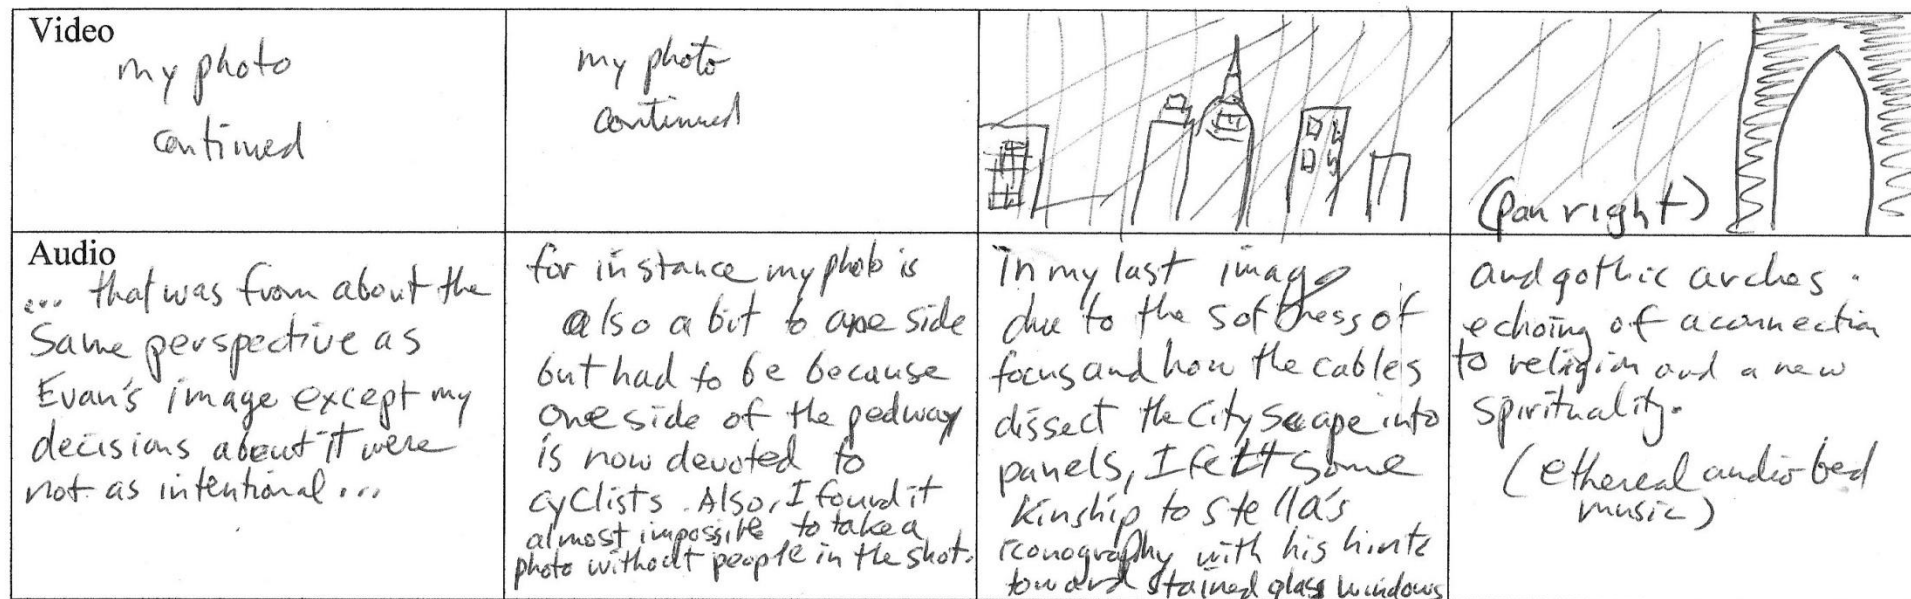 Video
my photo
continued
my photo
continued
(pan right)
Audio
... that was from about the
same perspective as
Evan's image except my
decisions about it were
not as intentional...
for instance my photo is
also a bit to one side
but had to be because
one side of the pedway
is now devoted to
cyclists. Also, I found it
almost impossible to take a
photo without people in the shot.
in my last image
due to the softness of
focus and how the cables
dissect the cityscape into
panels, I felt some
kinship to Stella's
iconography with his hints
toward stained glass windows
and gothic arches.
echoing of a connection
to religion and a new
spirituality.
(ethereal audio bed
music)